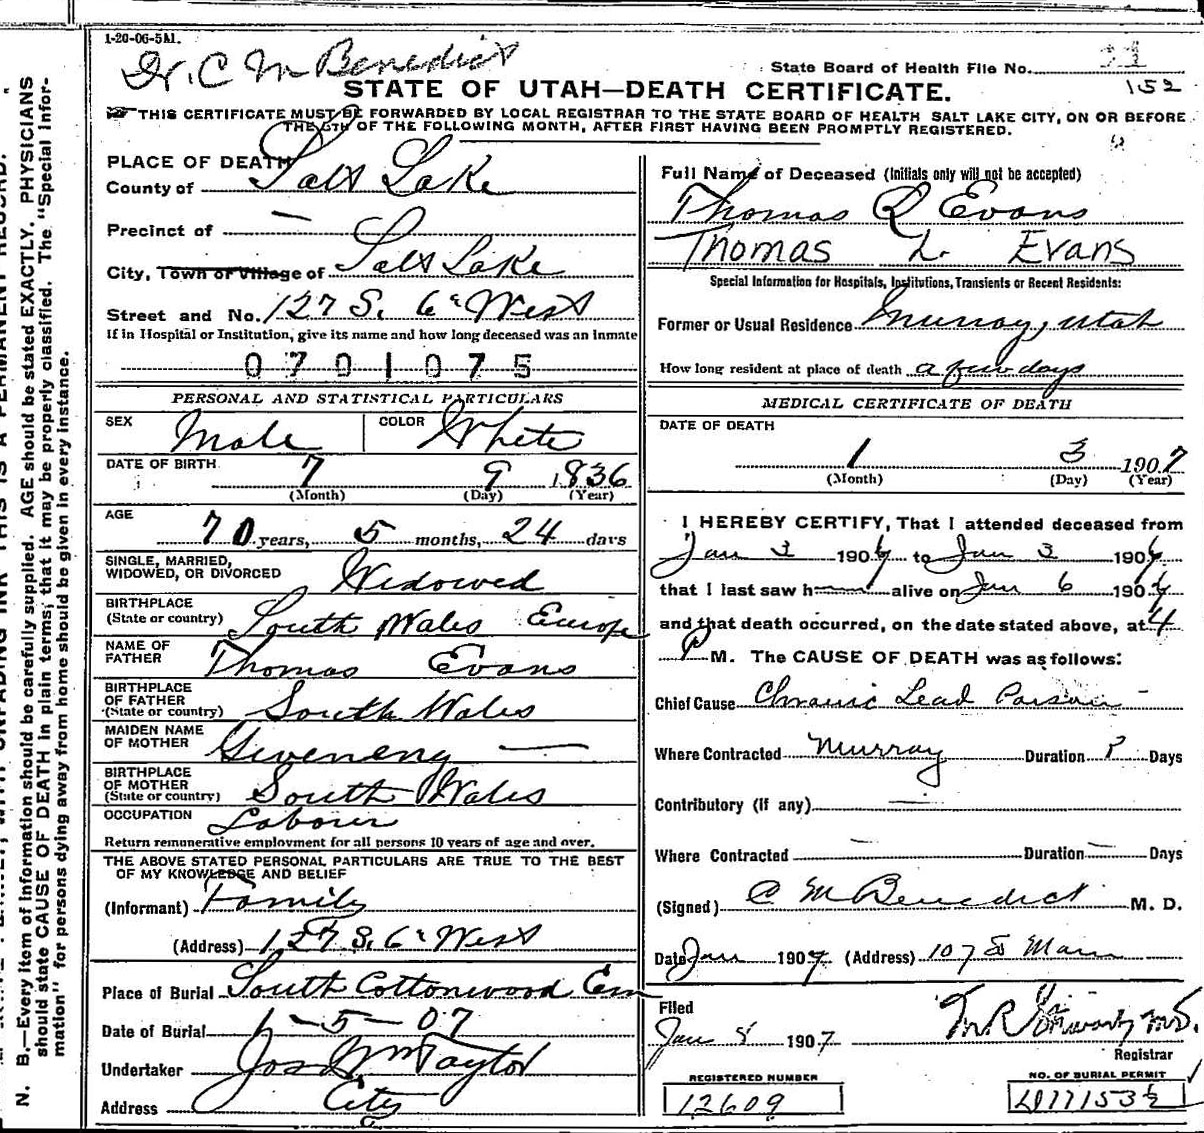 1-20-06-5M.
Dr. C M Benedict
State Board of Health File No.
152
STATE OF UTAH—DEATH CERTIFICATE.
THIS CERTIFICATE MUST BE FORWARDED BY LOCAL REGISTRAR TO THE STATE BOARD OF HEALTH SALT LAKE CITY, ON OR BEFORE
THE 5TH OF THE FOLLOWING MONTH, AFTER FIRST HAVING BEEN PROMPTLY REGISTERED.
PLACE OF DEATH
County of Salt Lake
Precinct of —
City, Town or Village of Salt Lake
Street and No. 127 S. 6th West
If in Hospital or Institution, give its name and how long deceased was an inmate
0701075
PERSONAL AND STATISTICAL PARTICULARS
SEX Male COLOR White
DATE OF BIRTH 7 9 1836
(Month) (Day) (Year)
AGE
70 years, 5 months, 24 days
SINGLE, MARRIED,
WIDOWED, OR DIVORCED Widowed
BIRTHPLACE
(State or country) South Wales Europe
NAME OF
FATHER Thomas Evans
BIRTHPLACE
OF FATHER
(State or country) South Wales
MAIDEN NAME
OF MOTHER —
BIRTHPLACE
OF MOTHER
(State or country) South Wales
OCCUPATION Labour
Return remunerative employment for all persons 10 years of age and over.
THE ABOVE STATED PERSONAL PARTICULARS ARE TRUE TO THE BEST
OF MY KNOWLEDGE AND BELIEF
(Informant) Family
(Address) 127 S. 6th West
Place of Burial South Cottonwood Cem
Date of Burial 1-5-07
Undertaker Jos Wm Taylor
Address City
Full Name of Deceased (Initials only will not be accepted)
Thomas L Evans
Thomas L. Evans
Special Information for Hospitals, Institutions, Transients or Recent Residents:
Former or Usual Residence Murray, Utah
How long resident at place of death a few days
MEDICAL CERTIFICATE OF DEATH
DATE OF DEATH
1 3 1907
(Month) (Day) (Year)
I HEREBY CERTIFY, That I attended deceased from
Jan 3 190 to Jan 3 190
that I last saw h alive on Jan 6 190
and that death occurred, on the date stated above, at 4
P M. The CAUSE OF DEATH was as follows:
Chief Cause Chronic Lead Poison
Where Contracted Murray Duration ? Days
Contributory (if any) —
Where Contracted — Duration — Days
(Signed) C M Benedict M. D.
Date Jan 1907 (Address) 107 S Main
Filed
Jan 8 1907
Registrar
REGISTERED NUMBER
12609
NO. OF BURIAL PERMIT
N. B.—Every item of information should be carefully supplied. AGE should be stated EXACTLY. PHYSICIANS
should state CAUSE OF DEATH in plain terms, that it may be properly classified. The "Special Infor-
mation" for persons dying away from home should be given in every instance.